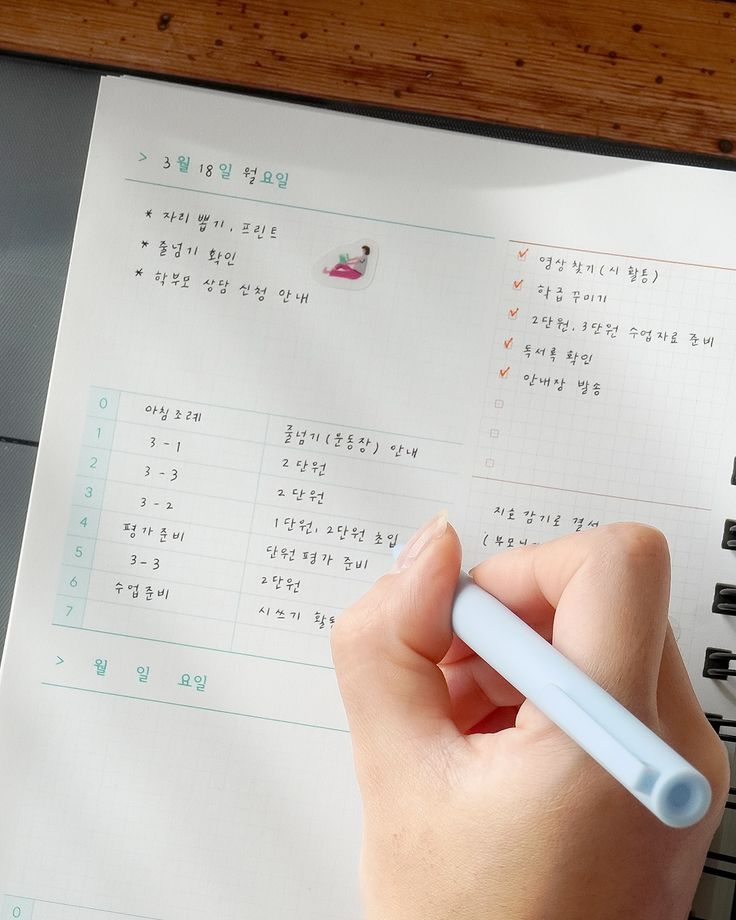 > 3월 18일 월요일
* 자리 뽑기, 프린트
* 줄넘기 확인
* 학부모 상담 신청 안내
영상 찾기(시 활동)
학급 꾸미기
2단원, 3단원 수업자료 준비
독서록 확인
안내장 발송
0 아침조례 줄넘기(운동장) 안내
1 3-1 2단원
2 3-3 2단원
3 3-2 1단원, 2단원 초입
4 평가준비 단원평가 준비
5 3-3 2단원
6 수업준비 시쓰기 활동
7
지호 감기로 결석
> 월 일 요일
0